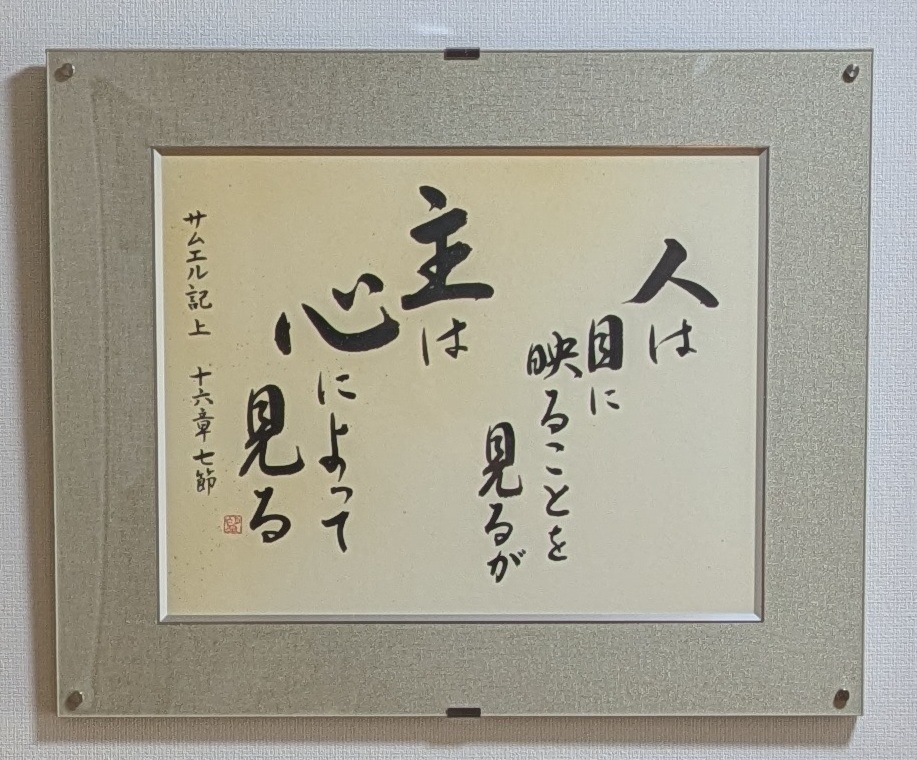 人は
目に
映ることを
見るが
主は
心
によって
見る
サムエル記上 十六章七節